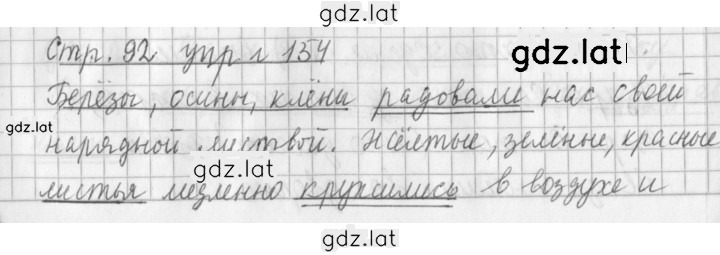 gdz.lat
Стр. 92 упр г 154
gdz.lat
Берёзы, осины, клёны радовали нас своей
gdz.lat
нарядной листвой. Жёлтые, зелёные, красные
gdz.lat
листья медленно кружились в воздухе и
gdz.lat